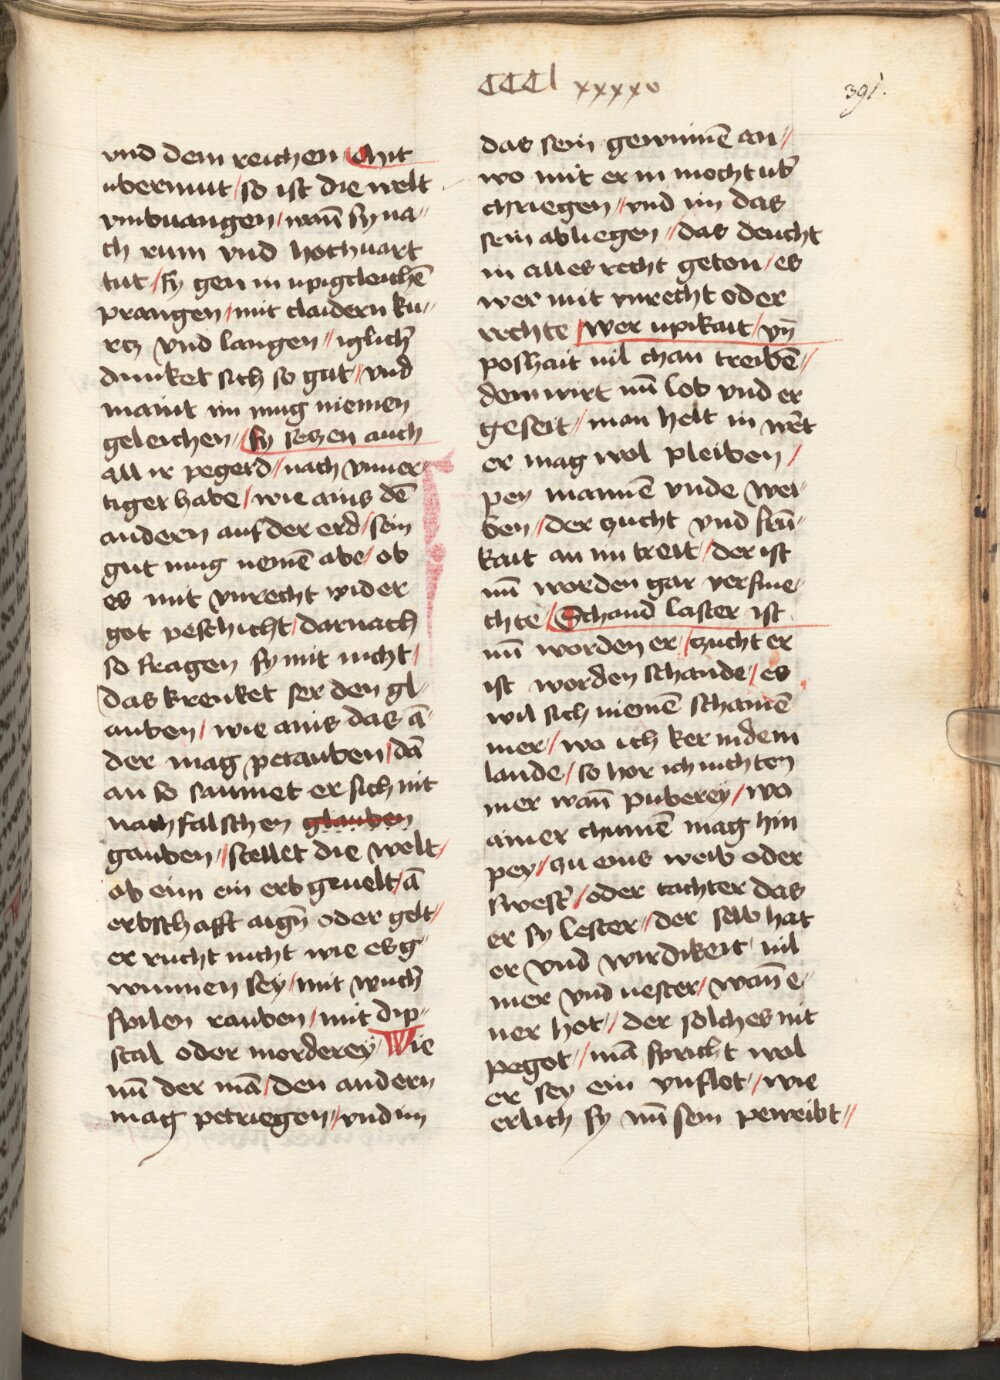 CCCl xxxxv
391.
vnd dem reichen / Mit
vbermut / so ist die welt
vmbuangen / wan̄ sy na//
ch rum vnd hochuart
tut / sy gen in vpigkleichē
prangen / mit claidern ku//
rcz vnd langen // iglichʼ
dunket sich so gut // vnd
maint im mug niemen
geleichen // Sy seczen auch
all ir pegerd / nach vnuer
tiger habe / wie ains dē
andern auf der erd / sein
gut mug nemē abe / ob
es mit vnrecht wider
got peschicht / darnach
so fragen sy mit nicht /
das krenket ser den gl//
auben / wie ains das ā//
der mag petauben / dā
an so saumet er sich nit
nach falschen glauben
gauben // stellet die welt /
ob eim ein erb geuelt / ā
erbschafft aign̄ oder gelt /
er rucht nicht wie es g//
wunnen sey / mit wuchʼ
spilen rauben / mit dip//
stal oder morderey / Wie
nū der mā / den andern
mag petriegen // vnd im
das sein gewinnē an //
wo mit er in mocht vbʼ
chriegen // vnd im das
sein abliegen // das deucht
in alles recht geton / es
wer mit vnrecht oder
rechte / Wer vpikait / vn̄
poshait vil chan treibē //
dem wirt nū lob vnd er
geseit / man helt in wē̄t
er mag wol pleiben /
pey mannē vnde wei
ben // der zucht vnd steti//
kait an im treit / der ist
nū worden gar versme//
chte / Schand laster ist
nū worden er / zucht er
ist worden schande / es
wil sich niemē schamē
mer / wo ich ker in dem
lande / so hor ich nichten
mer wan̄ puberey / wo
ainer chumē mag hin
pey / zu eins weib oder
swestʼ / oder tachter das
er sy lester // der selb hat
er vnd wirdikeit vil
mer vnd vester / wan̄ e//
ner hot // der solches nit
pegot / mā spricht wol
er sey ein vnflot / wie
erlich sy nū sein peweibt //